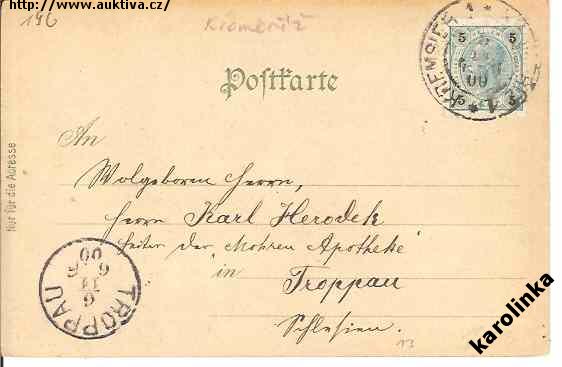 http://www.auktiva.cz/
196
Kroměříž
Postkarte
5 5
5 5
KREMSIER
1
00
An
Wolgeborm Herrn,
Herrn Karl Herodek
Leiter der "Mohren Apotheke"
in
Troppau
Schlesien.
Nur für die Adresse
TROPPAU
6
11
6
00
13
karolinka